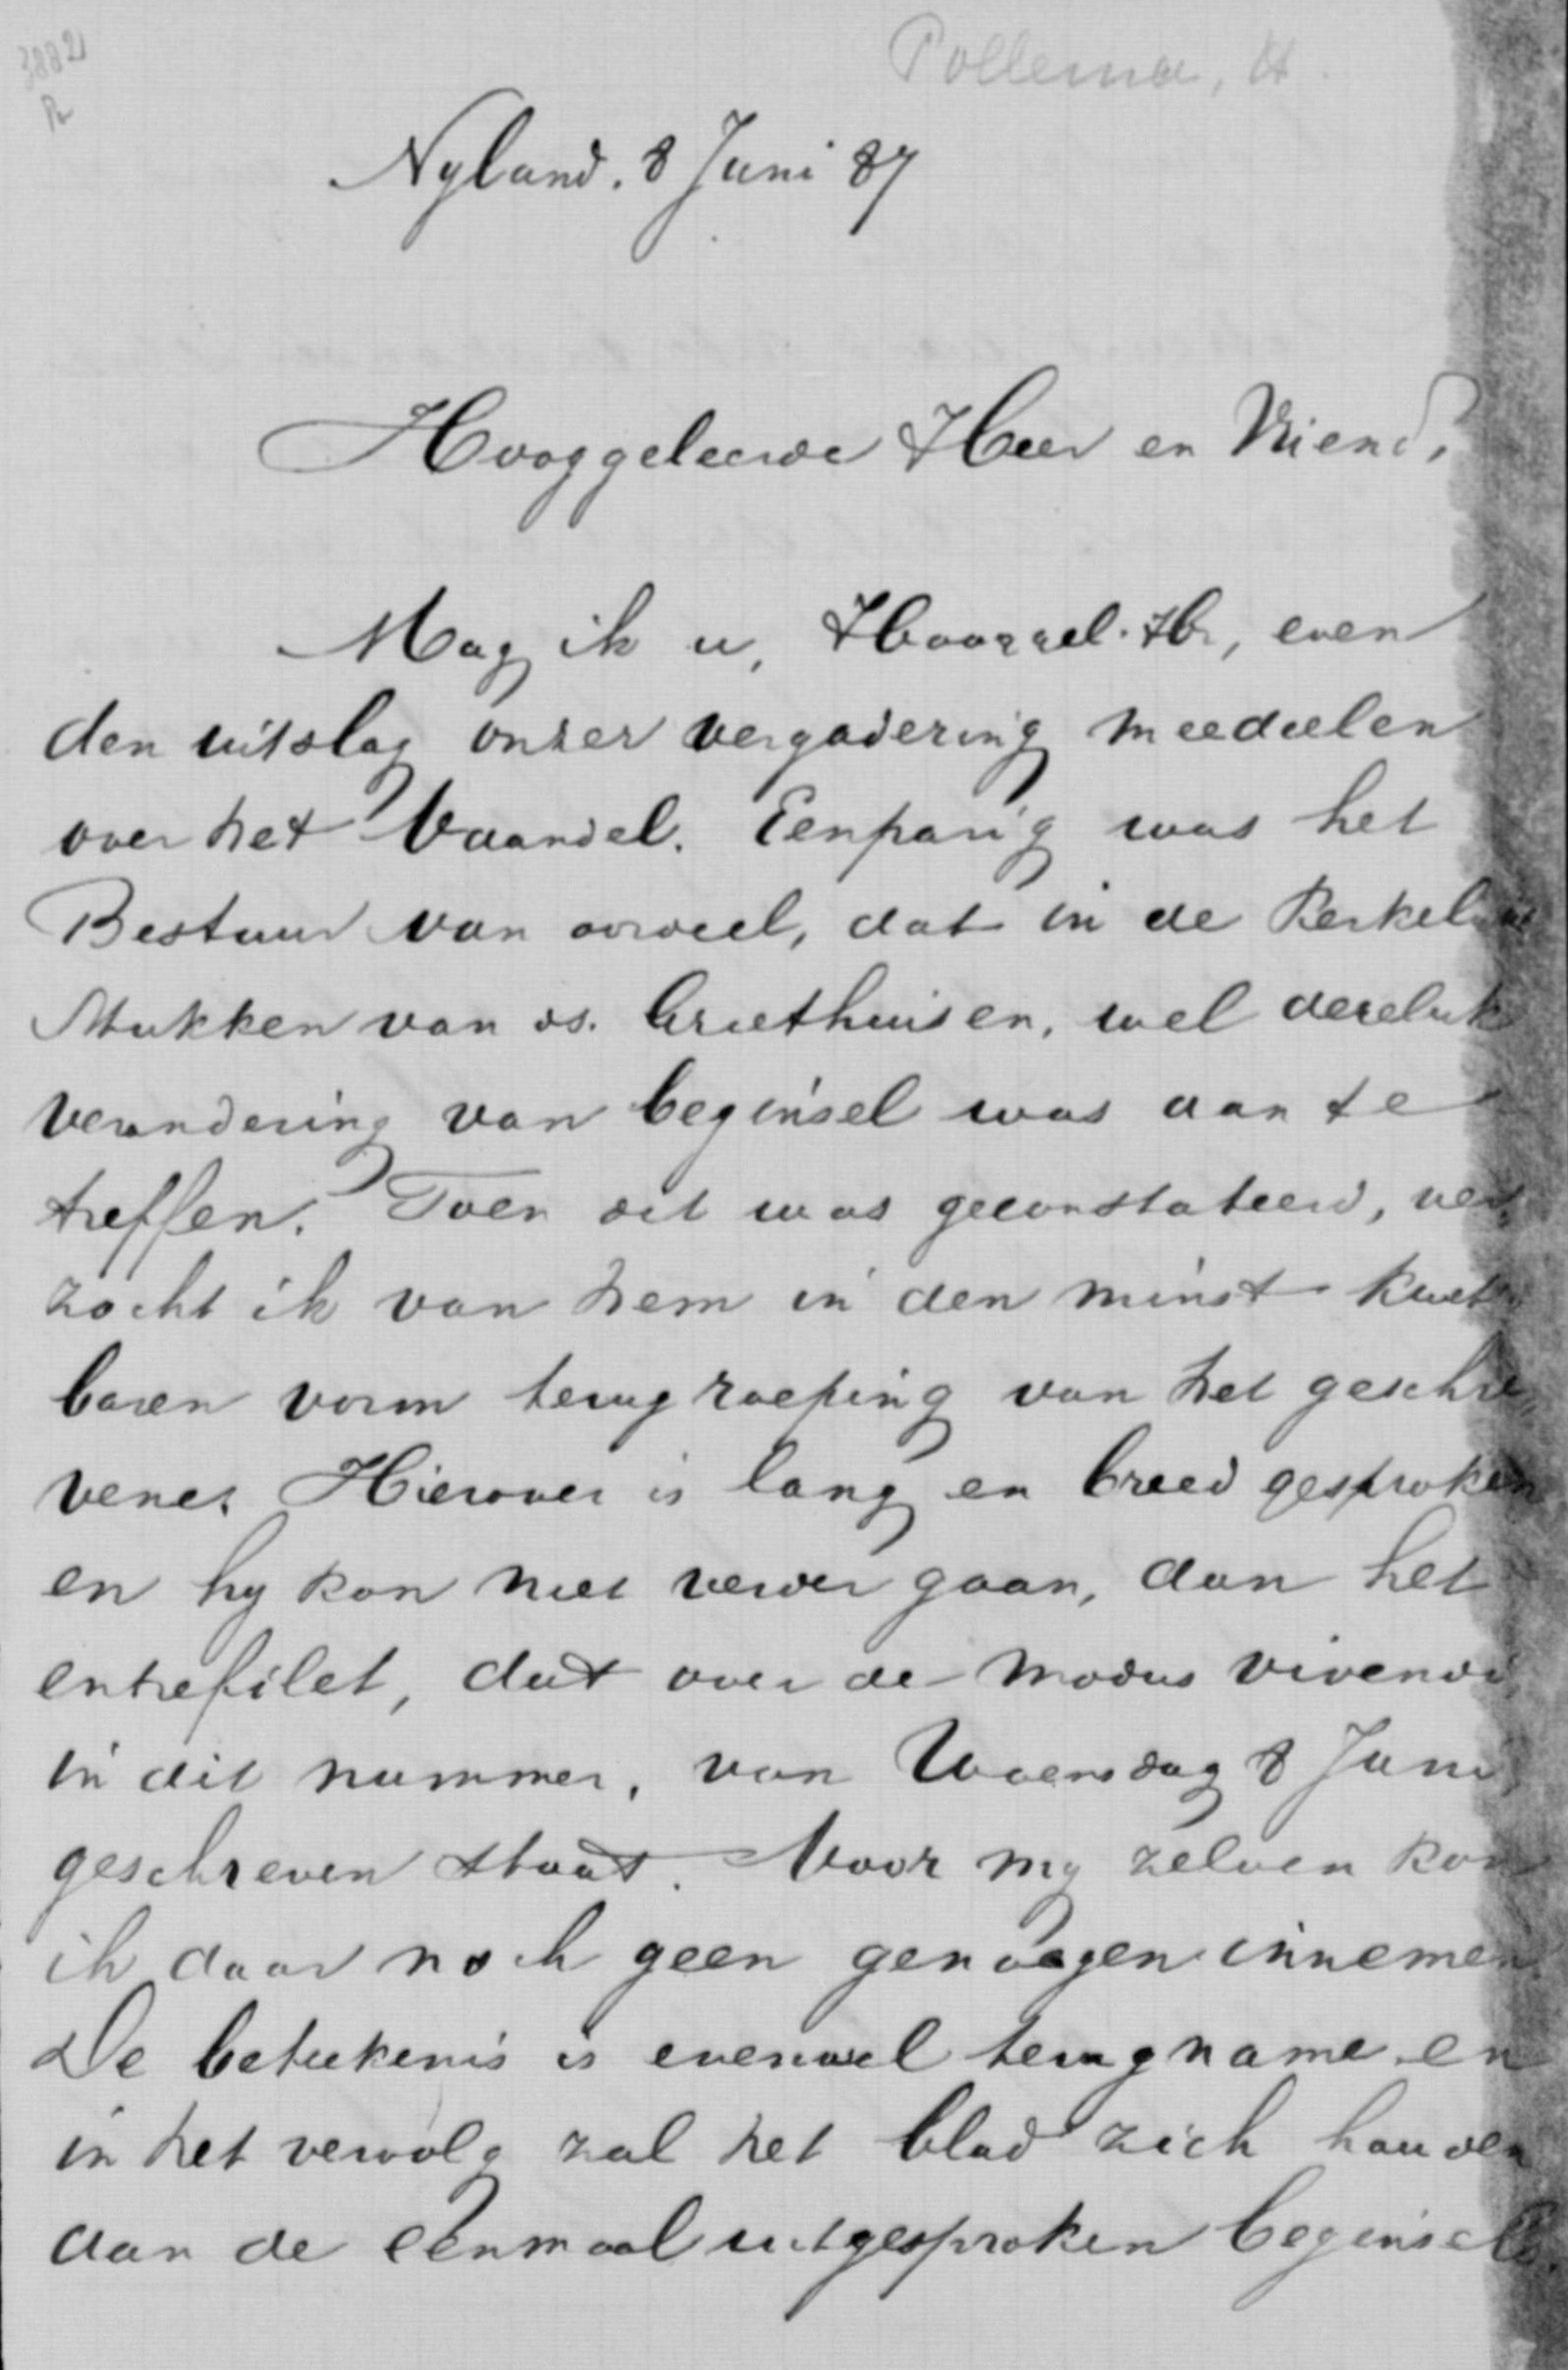 38821
Pollema, H.
Nyland. 8 Juni 87
Hooggeleerde Heer en Vriend,
Mag ik u, Hooggel. Hr, even
den uitslag onzer vergadering meedeelen
over het Vaandel. Eenparig was het
Bestuur van oordeel, dat in de Kerkelijke
stukken van ds. Griethuisen, wel deselijk
verandering van beginsel was aan te
treffen. Toen dit was geconstateerd, ver,
zocht ik van hem in den minst kwets,
baren vorm terugroeping van het geschre,
vene. Hierover is lang en breed gesproken
en hy kon niet verder gaan, dan het
entrefilet, dat over de modus vivendi,
in dit nummer, van Woensdag 8 Juni
geschreven staat. Voor my zelven kon
ik daar noch geen genoegen innemen.
De beteekenis is evenwel terugname en
in het vervolg zal het blad zich houden
aan de eenmaal uitgesproken beginsels.